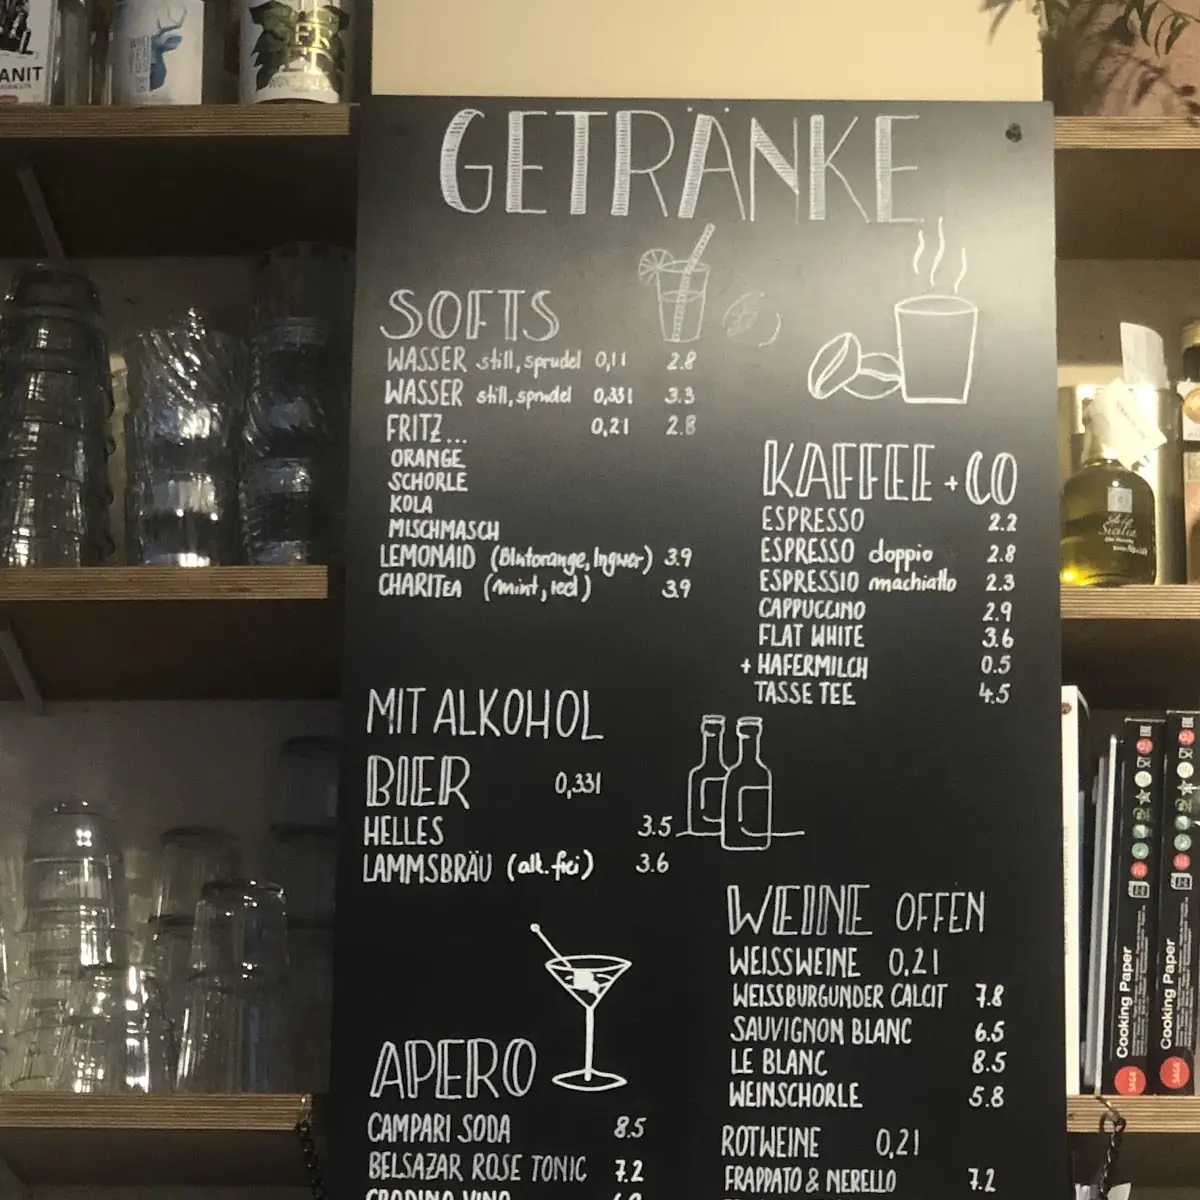 ANIT
GETRÄNKE
SOFTS
WASSER still, sprudel 0,1l 2.8
WASSER still, sprudel 0,33l 3.3
FRITZ... 0,2l 2.8
ORANGE
SCHORLE
KOLA
MISCHMASCH
LEMONAID (Blutorange, Ingwer) 3.9
CHARITEA (mint, red) 3.9
KAFFEE + CO
ESPRESSO 2.2
ESPRESSO doppio 2.8
ESPRESSIO machiatto 2.3
CAPPUCCINO 2.9
FLAT WHITE 3.6
+ HAFERMILCH 0.5
TASSE TEE 4.5
MIT ALKOHOL
BIER 0,33l
HELLES 3.5
LAMMSBRÄU (alk. frei) 3.6
WEINE OFFEN
WEISSWEINE 0,2l
WEISSBURGUNDER CALCIT 7.8
SAUVIGNON BLANC 6.5
LE BLANC 8.5
WEINSCHORLE 5.8
ROTWEINE 0,2l
FRAPPATO & NERELLO 7.2
APERO
CAMPARI SODA 8.5
BELSAZAR ROSE TONIC 7.2
Cooking Paper
SAGA
Cooking Paper
SAGA